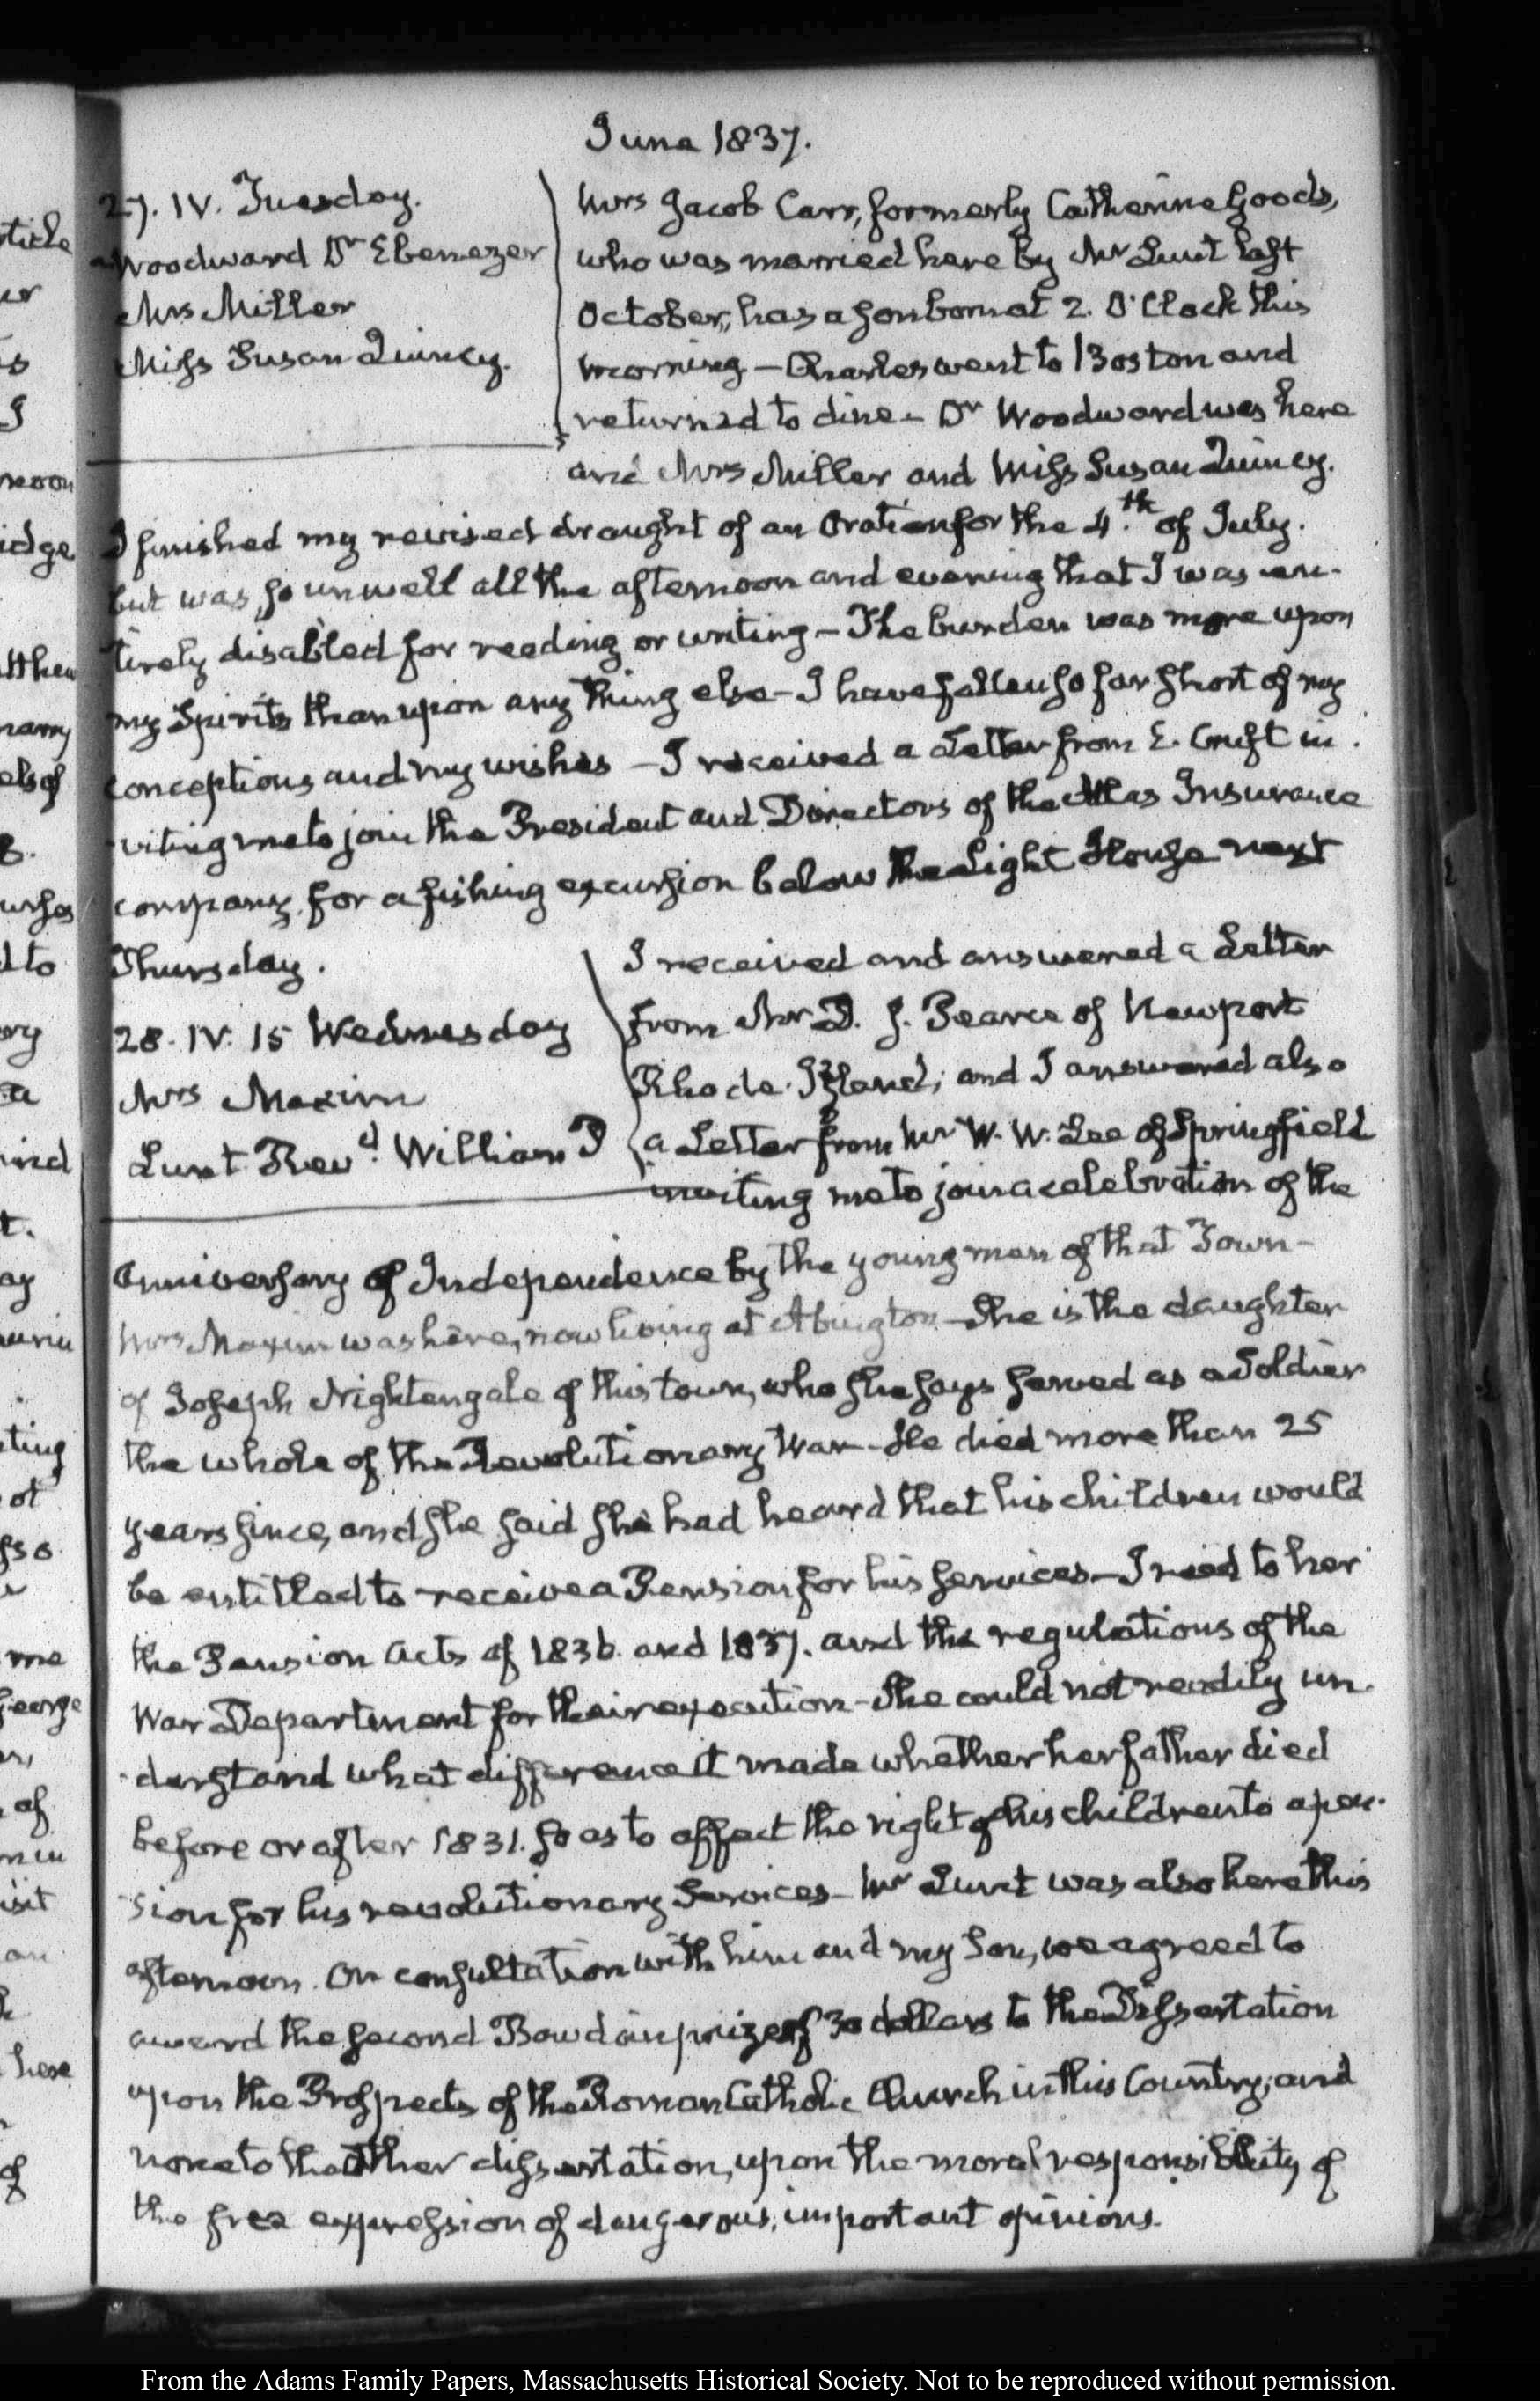 June 1837.
27. IV. Tuesday.
Woodward Dr Ebenezer
Mrs Miller
Miss Susan Quincy.
Mrs Jacob Carr, formerly Catherine Goods,
who was married here by Mr Lunt last
October, has a son born at 2. O'Clock this
morning — Charles went to Boston and
returned to dine — Dr Woodward was here
and Mrs Miller and Miss Susan Quincy.
I finished my revised draught of an Oration for the 4.th of July.
but was so unwell all the afternoon and evening that I was en-
tirely disabled for reading or writing — The burden was more upon
my Spirits than upon any thing else — I have fallen so far short of my
conceptions and my wishes — I received a Letter from E. Cruft in
viting me to join the President and Directors of the Atlas Insurance
company, for a fishing excursion below the Light House next
Thursday.
28. IV. 15 Wednesday
Mrs Maxim
Lunt Revd. William P
I received and answered a Letter
from Mr D. J. Pearce of Newport
Rhode Island; and I answered also
a Letter from Mr W. W. Lee of Springfield
inviting me to join a celebration of the
Anniversary of Independence by the young men of that Town —
Mrs Maxim was here, now living at Abington — She is the daughter
of Joseph Nightengale of this town, who she says served as a Soldier
the whole of the Revolutionary War — He died more than 25
years since, and she said she had heard that his children would
be entitled to receive a Pension for his services — I read to her
the Pension Acts of 1836 and 1837. and the regulations of the
War Department for their execution — She could not readily un-
derstand what difference it made whether her father died
before or after 1831. so as to affect the right of his children to a pen-
sion for his revolutionary Services — Mr Lunt was also here this
afternoon. On consultation with him and my Son, we agreed to
award the second Bowdoin prize of 30 dollars to the Dissertation
upon the Prospects of the Roman Catholic Church in this Country; and
none to the other dissertation, upon the moral responsibility of
the free expression of dangerous, important opinions.
From the Adams Family Papers, Massachusetts Historical Society. Not to be reproduced without permission.